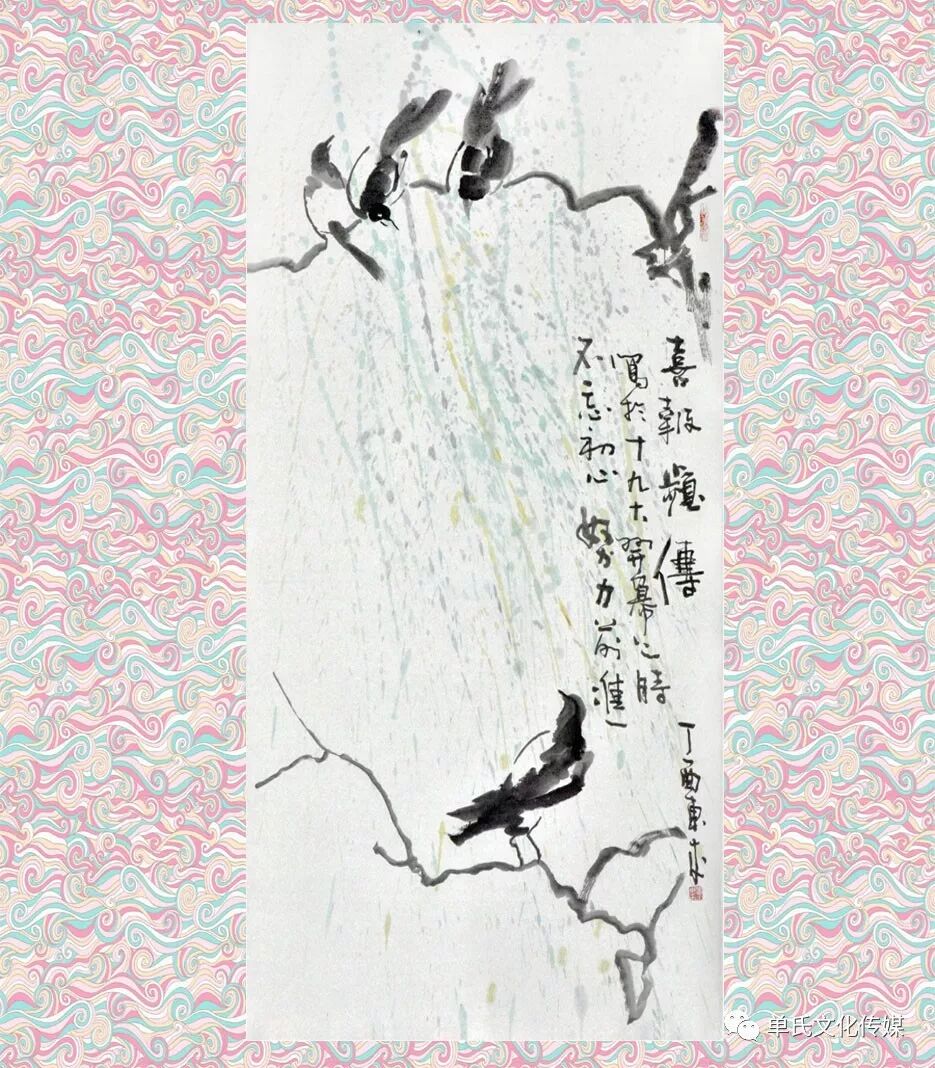 喜報頻傳
寫於十九大開幕之時
不忘初心 努力前進
丁酉東
单氏文化传媒